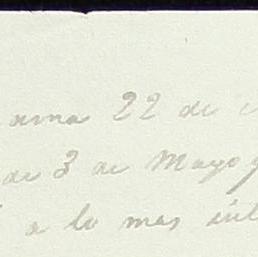 ama 22 de
de 3 de Mayo
a lo mas